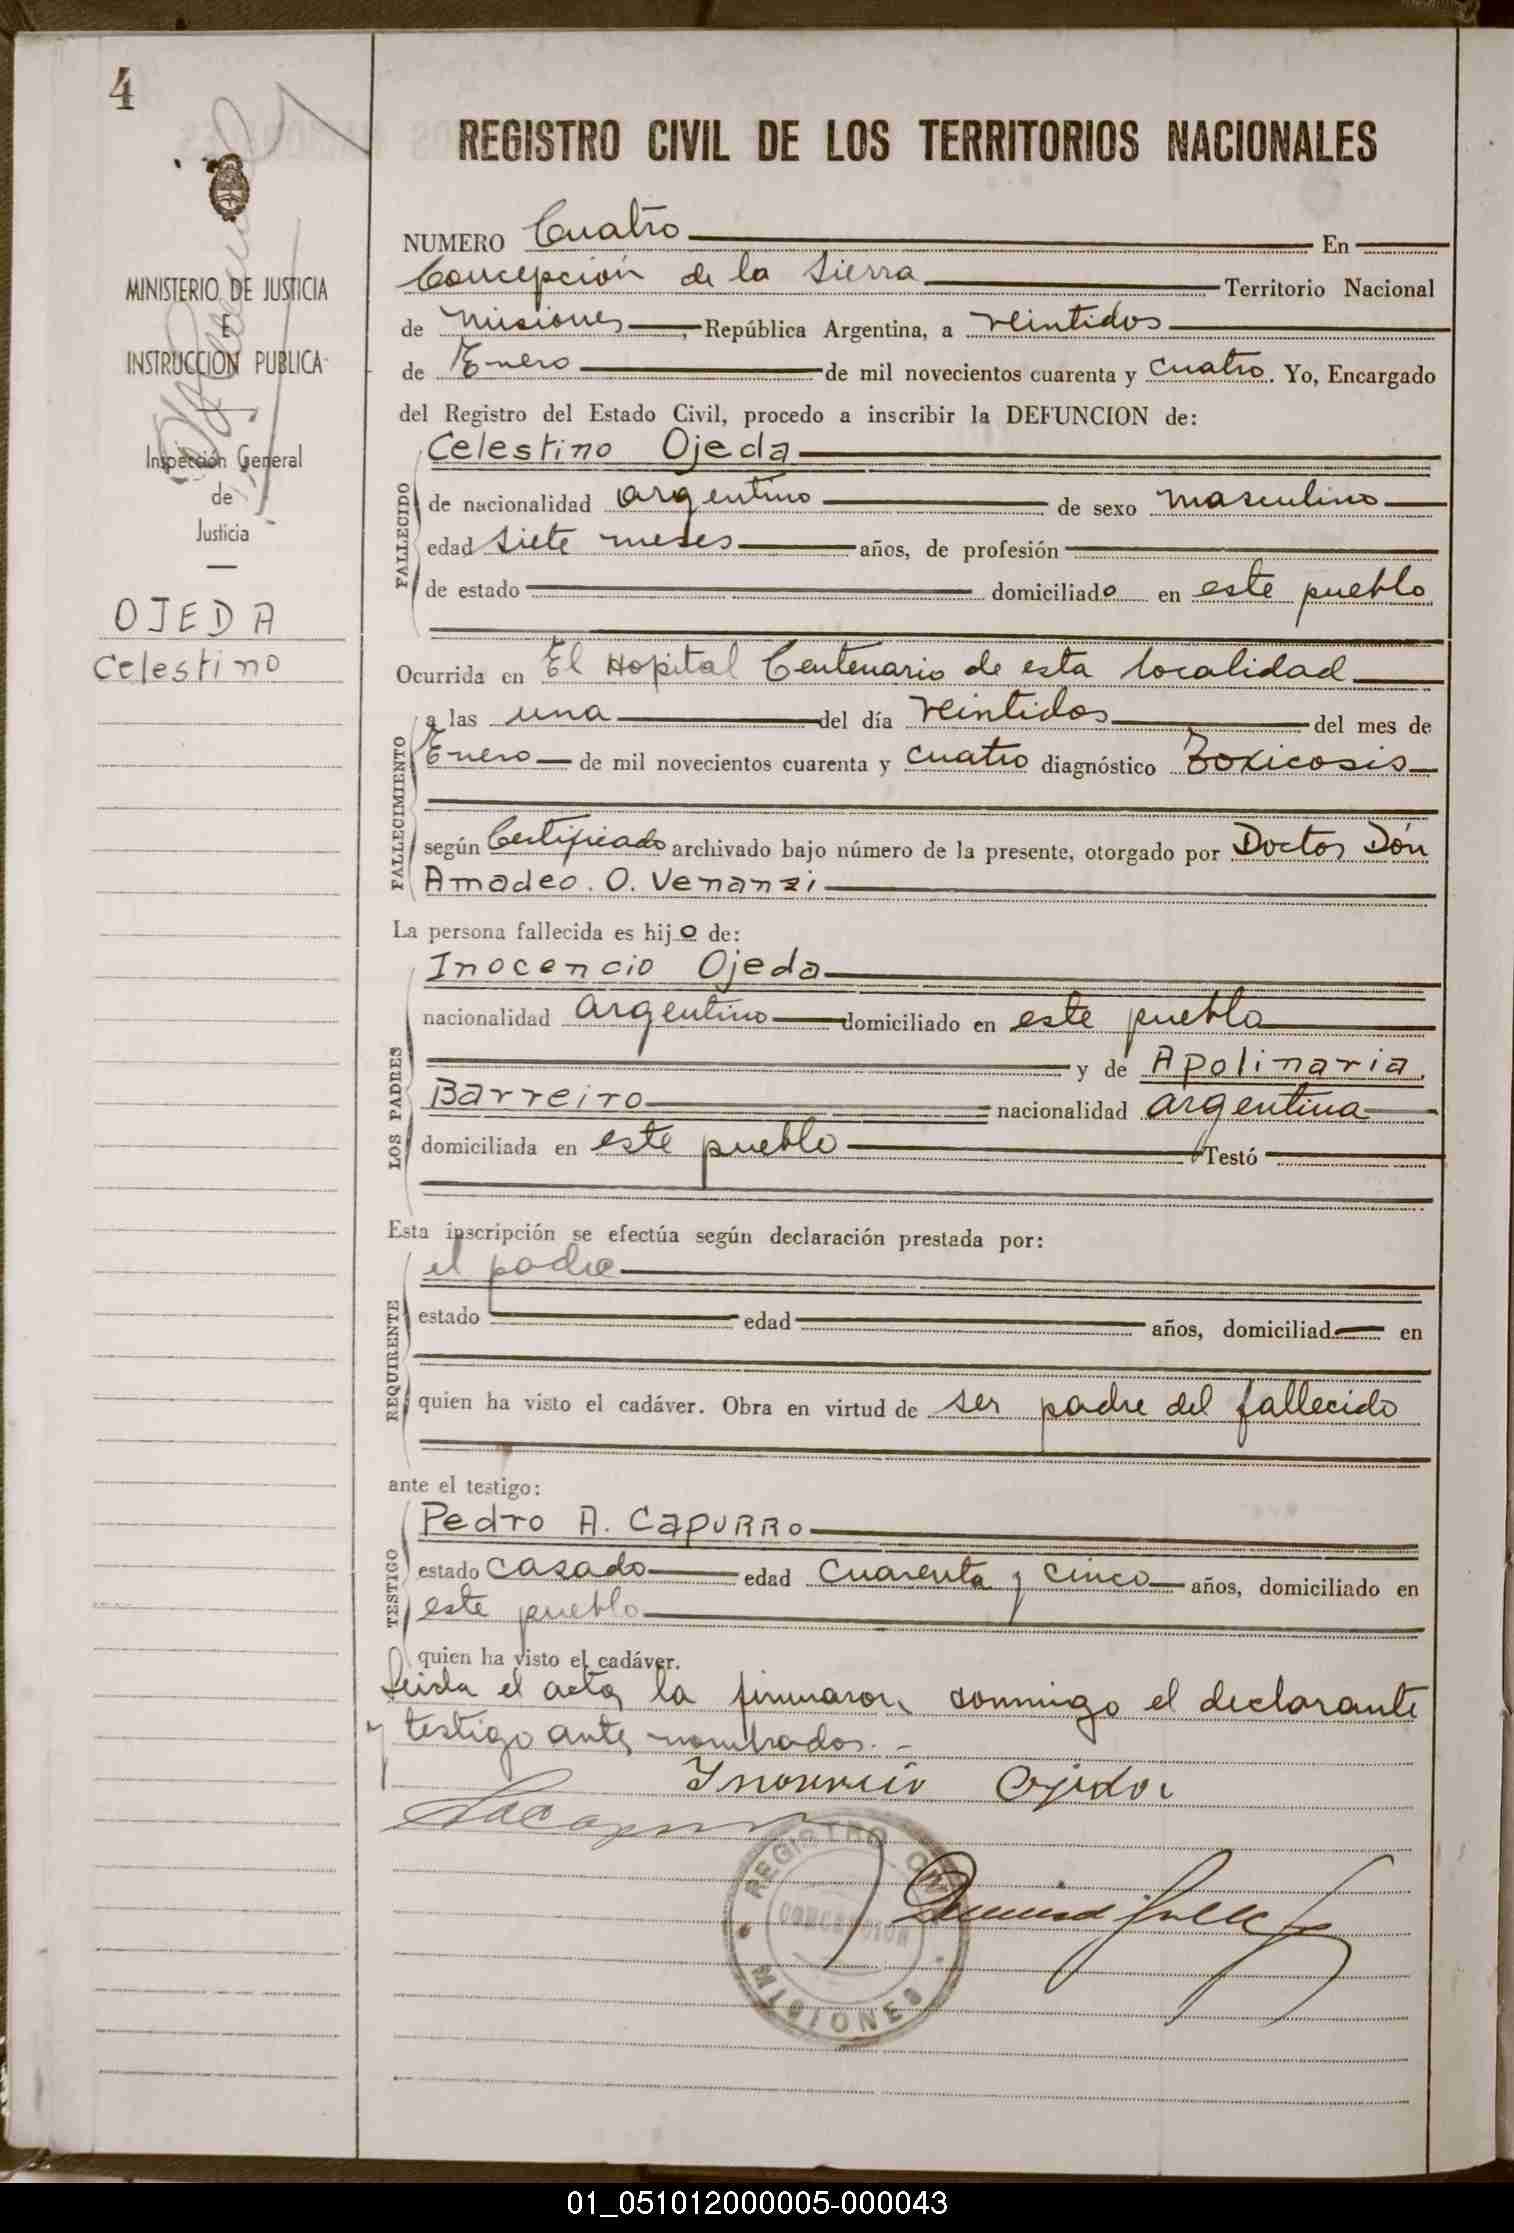 4
MINISTERIO DE JUSTICIA
E
INSTRUCCION PUBLICA
Inspección General
de
Justicia
OJEDA
Celestino
REGISTRO CIVIL DE LOS TERRITORIOS NACIONALES
NUMERO Cuatro En
Concepción de la Sierra Territorio Nacional
de Misiones, República Argentina, a veintidos
de Enero de mil novecientos cuarenta y cuatro. Yo, Encargado
del Registro del Estado Civil, procedo a inscribir la DEFUNCION de:
FALLECIDO
Celestino Ojeda
de nacionalidad argentino de sexo masculino
edad siete meses años, de profesión
de estado domiciliado en este pueblo
Ocurrida en El Hopital Centenario de esta localidad
FALLECIMIENTO
a las una del día veintidos del mes de
Enero de mil novecientos cuarenta y cuatro diagnóstico Toxicosis
según Certificado archivado bajo número de la presente, otorgado por Doctor Dón
Amadeo. O. Venanzi
La persona fallecida es hijo de:
LOS PADRES
Inocencio Ojeda
nacionalidad argentino domiciliado en este pueblo
y de Apolinaria
Barreiro nacionalidad argentina
domiciliada en este pueblo Testó
Esta inscripción se efectúa según declaración prestada por:
REQUIRENTE
el padre
estado edad años, domiciliad en
quien ha visto el cadáver. Obra en virtud de ser padre del fallecido
ante el testigo:
TESTIGO
Pedro A. Capurro
estado casado edad cuarenta y cinco años, domiciliado en
este pueblo
quien ha visto el cadáver.
Leida el acta, la firmaron conmigo el declarante
y testigo antes nombrados.-
Inosencio Ojeda
REGISTRO CIVIL
CONCEPCION
MISIONES
01_051012000005-000043